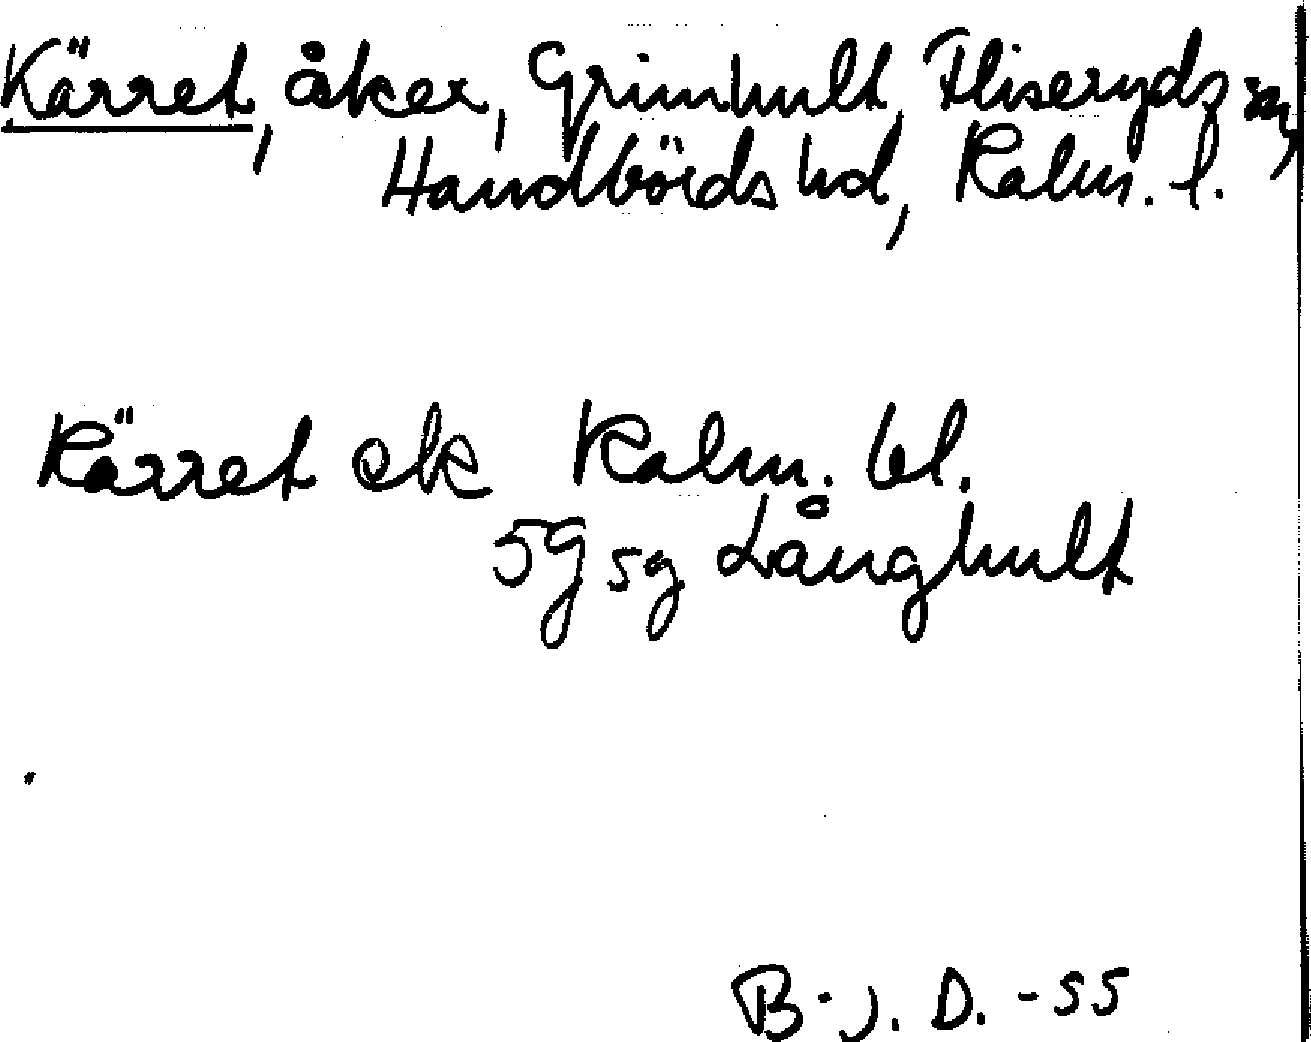 Kärret, åker, Grimhult, Fliseryds sn,
Handbörds hd, Kalm. l.
Kärret ek Kalm. bl.
5g 5g Långhult
B-J. D. -55